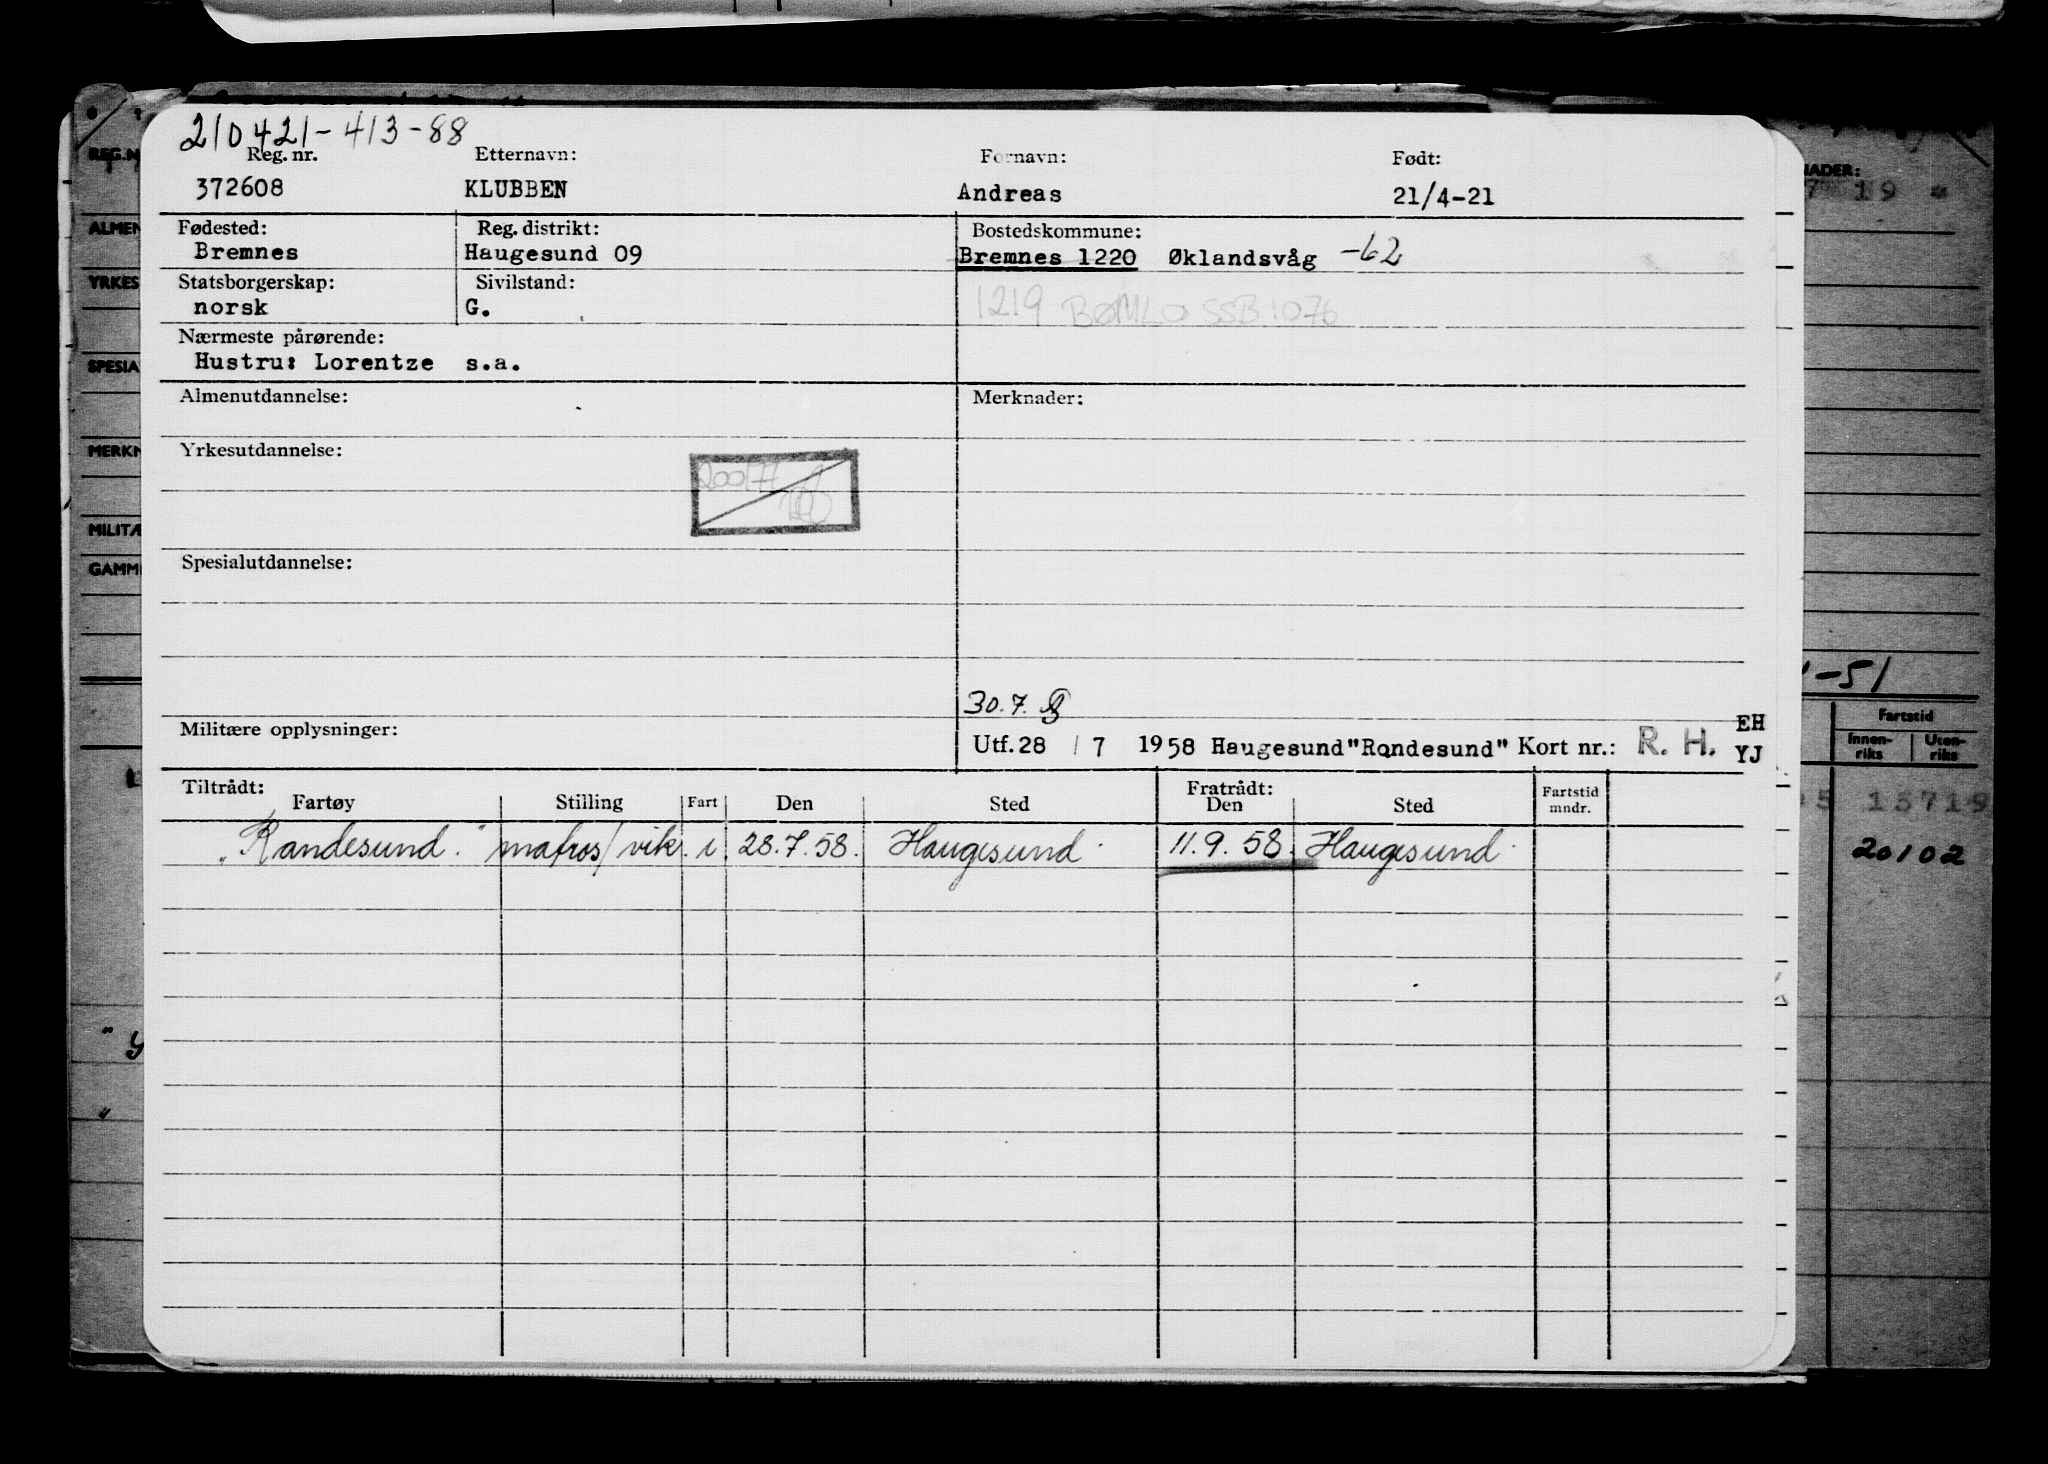 210421-413-88
Reg. nr. Etternavn: Fornavn: Født:
372608 KLUBBEN Andreas 21/4-21
Fødested: Reg. distrikt: Bostedskommune:
Bremnes Haugesund 09 Bremnes 1220 Øklandsvåg -62
Statsborgerskap: Sivilstand:
norsk G. 1219 BØMLO SSB 1076
Nærmeste pårørende:
Hustru: Lorentze s.a.
Almenutdannelse: Merknader:
Yrkesutdannelse:
200177
Spesialutdannelse:
30.7.
Militære opplysninger: Utf. 28 / 7 1958 Haugesund "Randesund" Kort nr.: R. H. EH
YJ
Tiltrådt: Fratrådt:
Fartøy Stilling Fart Den Sted Den Sted Fartstid mndr.
"Randesund." matros/vik. i. 28.7.58. Haugesund. 11.9.58. Haugesund.
REG.N
ALMEN
YRKES
SPESIA
MERKN
MILITÆ
GAMM
NADER:
7 19 *
-51
Fartstid
Innen-riks Uten-riks
5 13719
20102